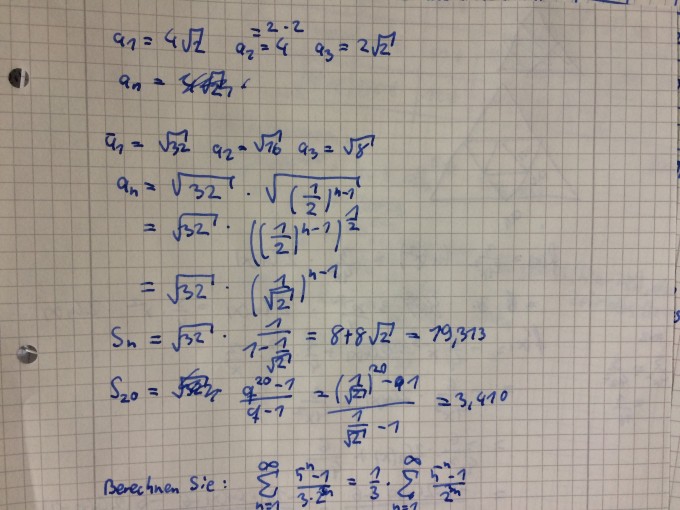 = 2 · 2
a1 = 4√2 a2 = 4 a3 = 2√2
an =
a1 = √32 a2 = √16 a3 = √8
an = √32 · √(1/2)^(n-1)
= √32 · ((1/2)^(n-1))^(1/2)
= √32 · (1/√2)^(n-1)
Sn = √32 · 1/(1 - 1/√2) = 8+8√2 = 19,313
S20 = (q^20 - 1)/(q - 1) = ((1/√2)^20 - 1)/(1/√2 - 1) = 3,410
Berechnen Sie: ∑_(n=1)^∞ (5^n - 1)/(3·2^n) = 1/3 · ∑_(n=1)^∞ (5^n - 1)/2^n